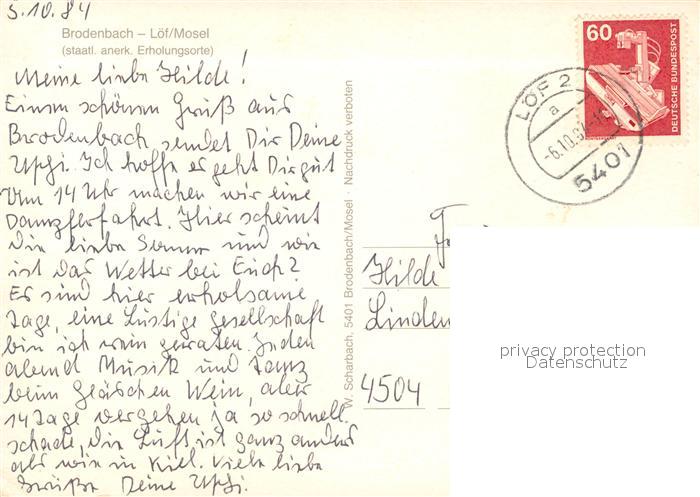 5.10.84
Brodenbach – Löf/Mosel
(staatl. anerk. Erholungsorte)
Meine liebe Hilde!
Einen schönen Gruß aus
Brodenbach sendet Dir Deine
Ich hoffe es geht Dir gut
Um 14 Uhr machen wir eine
Dampferfahrt. Hier scheint
die liebe Sonne und wie
ist das Wetter bei Euch?
Es sind hier erholsame
Tage, eine Lustige Gesellschaft
bin ich rein geraten. Jeden
abend Musik und Tanz
beim Gläschen Wein, aber
14 Tage vergehen ja so schnell
schade, die Luft ist ganz anders
als wie in Kiel. Viele liebe
Grüße Deine
W. Scharbach, 5401 Brodenbach/Mosel · Nachdruck verboten
60
DEUTSCHE BUNDESPOST
LÖF 2
a
-6.10.8
5401
Hilde
Linden
4504
privacy protection
Datenschutz